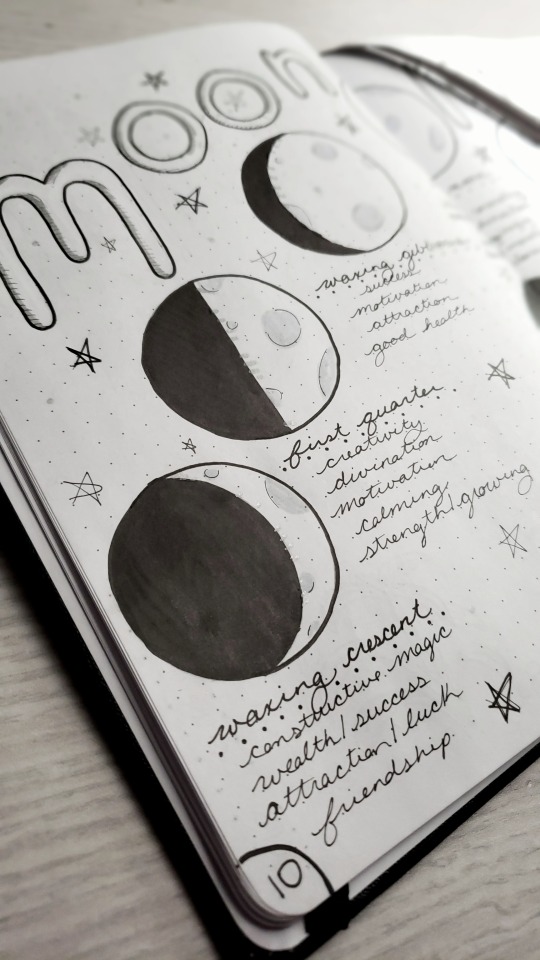 moon
waxing gibbous
success
motivation
attraction
good health
first quarter
creativity
divination
motivation
calming
strength/growing
waxing crescent
constructive magic
wealth/success
attraction/luck
friendship
10